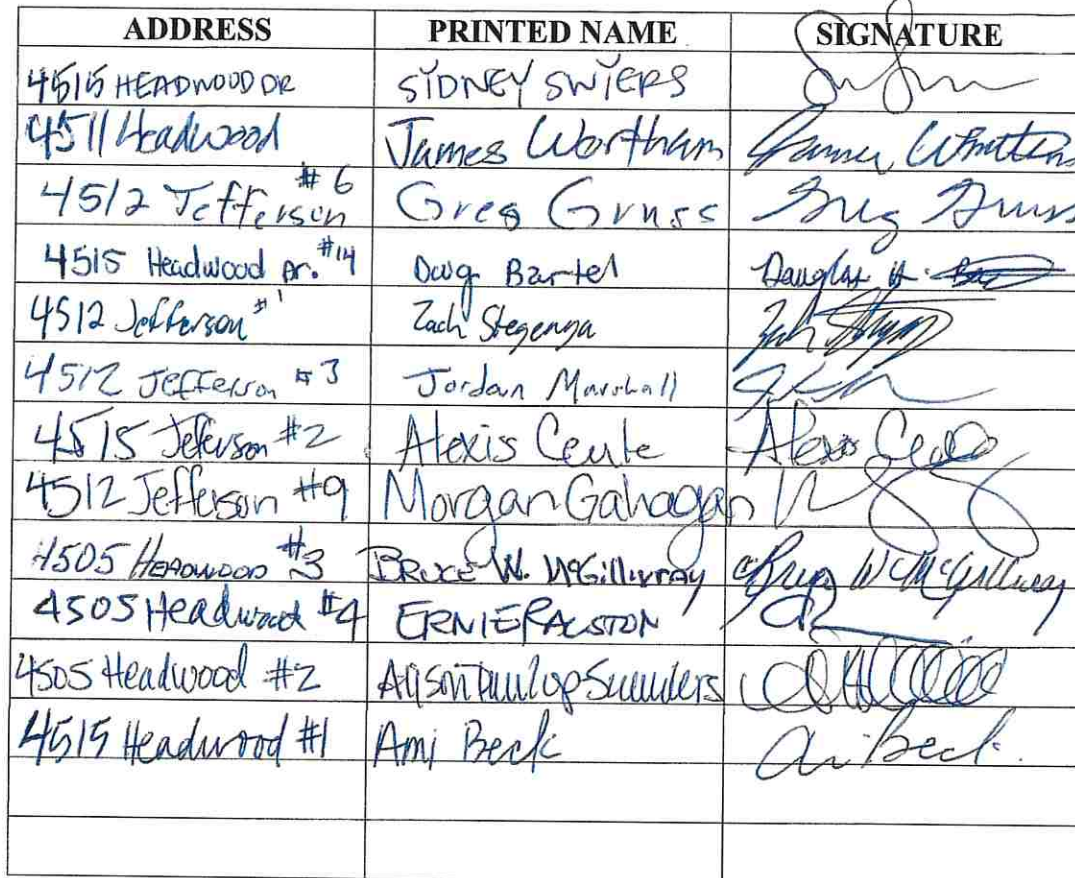 ADDRESS PRINTED NAME SIGNATURE
4515 HEADWOOD DR SIDNEY SWIERS
4511 Headwood James Wortham James Wortham
4512 Jefferson #6 Greg Gruss Greg Gruss
4515 Headwood Dr. #14 Doug Bartel Douglas
4512 Jefferson #1 Zach Stegenga Zach
4512 Jefferson #3 Jordan Marshall
4515 Jefferson #2 Alexis Ceule Alexis
4512 Jefferson #9 Morgan Gahagan
4505 HEADWOOD #3 BRUCE W. McGillivray Bruce W McGillivray
4505 Headwood #4 ERNIE RALSTON
4505 Headwood #2
4515 Headwood #1 Ami Beck Ami Beck